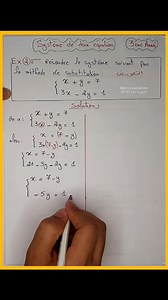 Système de deux équations
3ème Année
Ex ②:- Résoudre le système suivant par
la méthode de substitution التعويض
{ x + y = 7
3x - 2y = 1
Solution
on a: { x + y = 7
3x - 2y = 1
{ x = (7 - y)
3(7-y) - 2y = 1
{ x = 7 - y
21 - 3y - 2y = 1
{ x = 7 - y
- 5y = 1